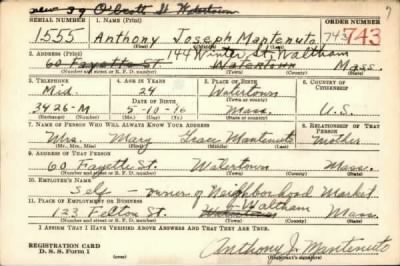 new 39 Olcott St Watertown
SERIAL NUMBER 1. NAME (Print) ORDER NUMBER
1555 Anthony Joseph Mantenuto 743 743
(First) (Middle) (Last)
144 Winter St, Waltham
2. ADDRESS (Print)
60 Fayette St Watertown Mass.
(Number and street or R. F. D. number) (Town) (County) (State)
3. TELEPHONE 4. AGE IN YEARS 5. PLACE OF BIRTH 6. COUNTRY OF CITIZENSHIP
Mid. 24 Watertown
DATE OF BIRTH (Town or county)
3426-M 5-10-16 Mass. U.S.
(Exchange) (Number) (Mo.) (Day) (Yr.) (State or country)
7. NAME OF PERSON WHO WILL ALWAYS KNOW YOUR ADDRESS 8. RELATIONSHIP OF THAT PERSON
Mrs. Mary Grace Mantenuto Mother
(Mr., Mrs., Miss) (First) (Middle) (Last)
9. ADDRESS OF THAT PERSON
60 Fayette St. Watertown Mass.
(Number and street or R. F. D. number) (Town) (County) (State)
10. EMPLOYER'S NAME
Self - owner of Neighborhood Market
11. PLACE OF EMPLOYMENT OR BUSINESS
- Waltham
123 Felton St. Mass
(Number and street or R. F. D. number) (Town) (County) (State)
I AFFIRM THAT I HAVE VERIFIED ABOVE ANSWERS AND THAT THEY ARE TRUE.
REGISTRATION CARD
D. S. S. Form 1
Anthony J. Mantenuto
(Registrant's signature)